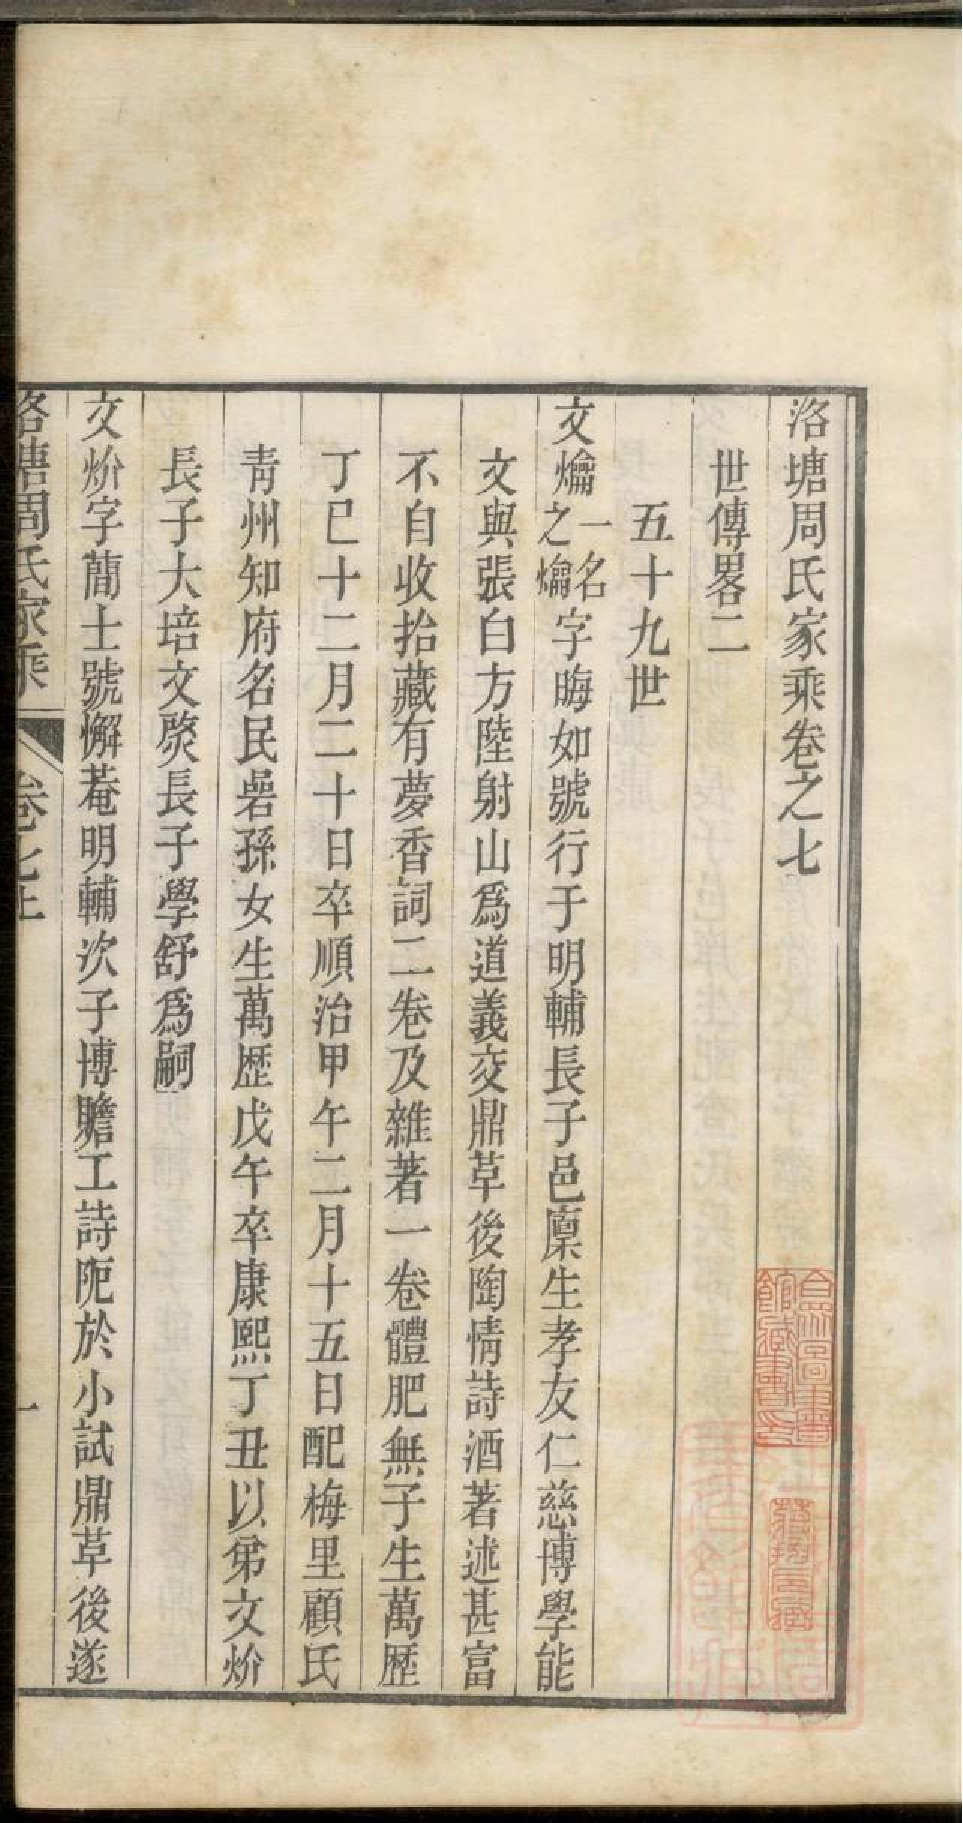 洛塘周氏家乘卷之七
世傳畧二
五十九世
文爚一名之爚字晦如號行于明輔長子邑廩生孝友仁慈博學能
文與張白方陸射山爲道義交鼎革後陶情詩酒著述甚富
不自收拾藏有夢香詞二卷及雜著一卷體肥無子生萬歷
丁巳十二月二十日卒順治甲午二月十五日配梅里顧氏
青州知府名民碞孫女生萬歷戊午卒康熙丁丑以弟文炌
長子大培文熒長子學舒爲嗣
文炌字蕳士號懈菴明輔次子博贍工詩阨於小試鼎革後遂
洛塘周氏家乘 卷七上 一